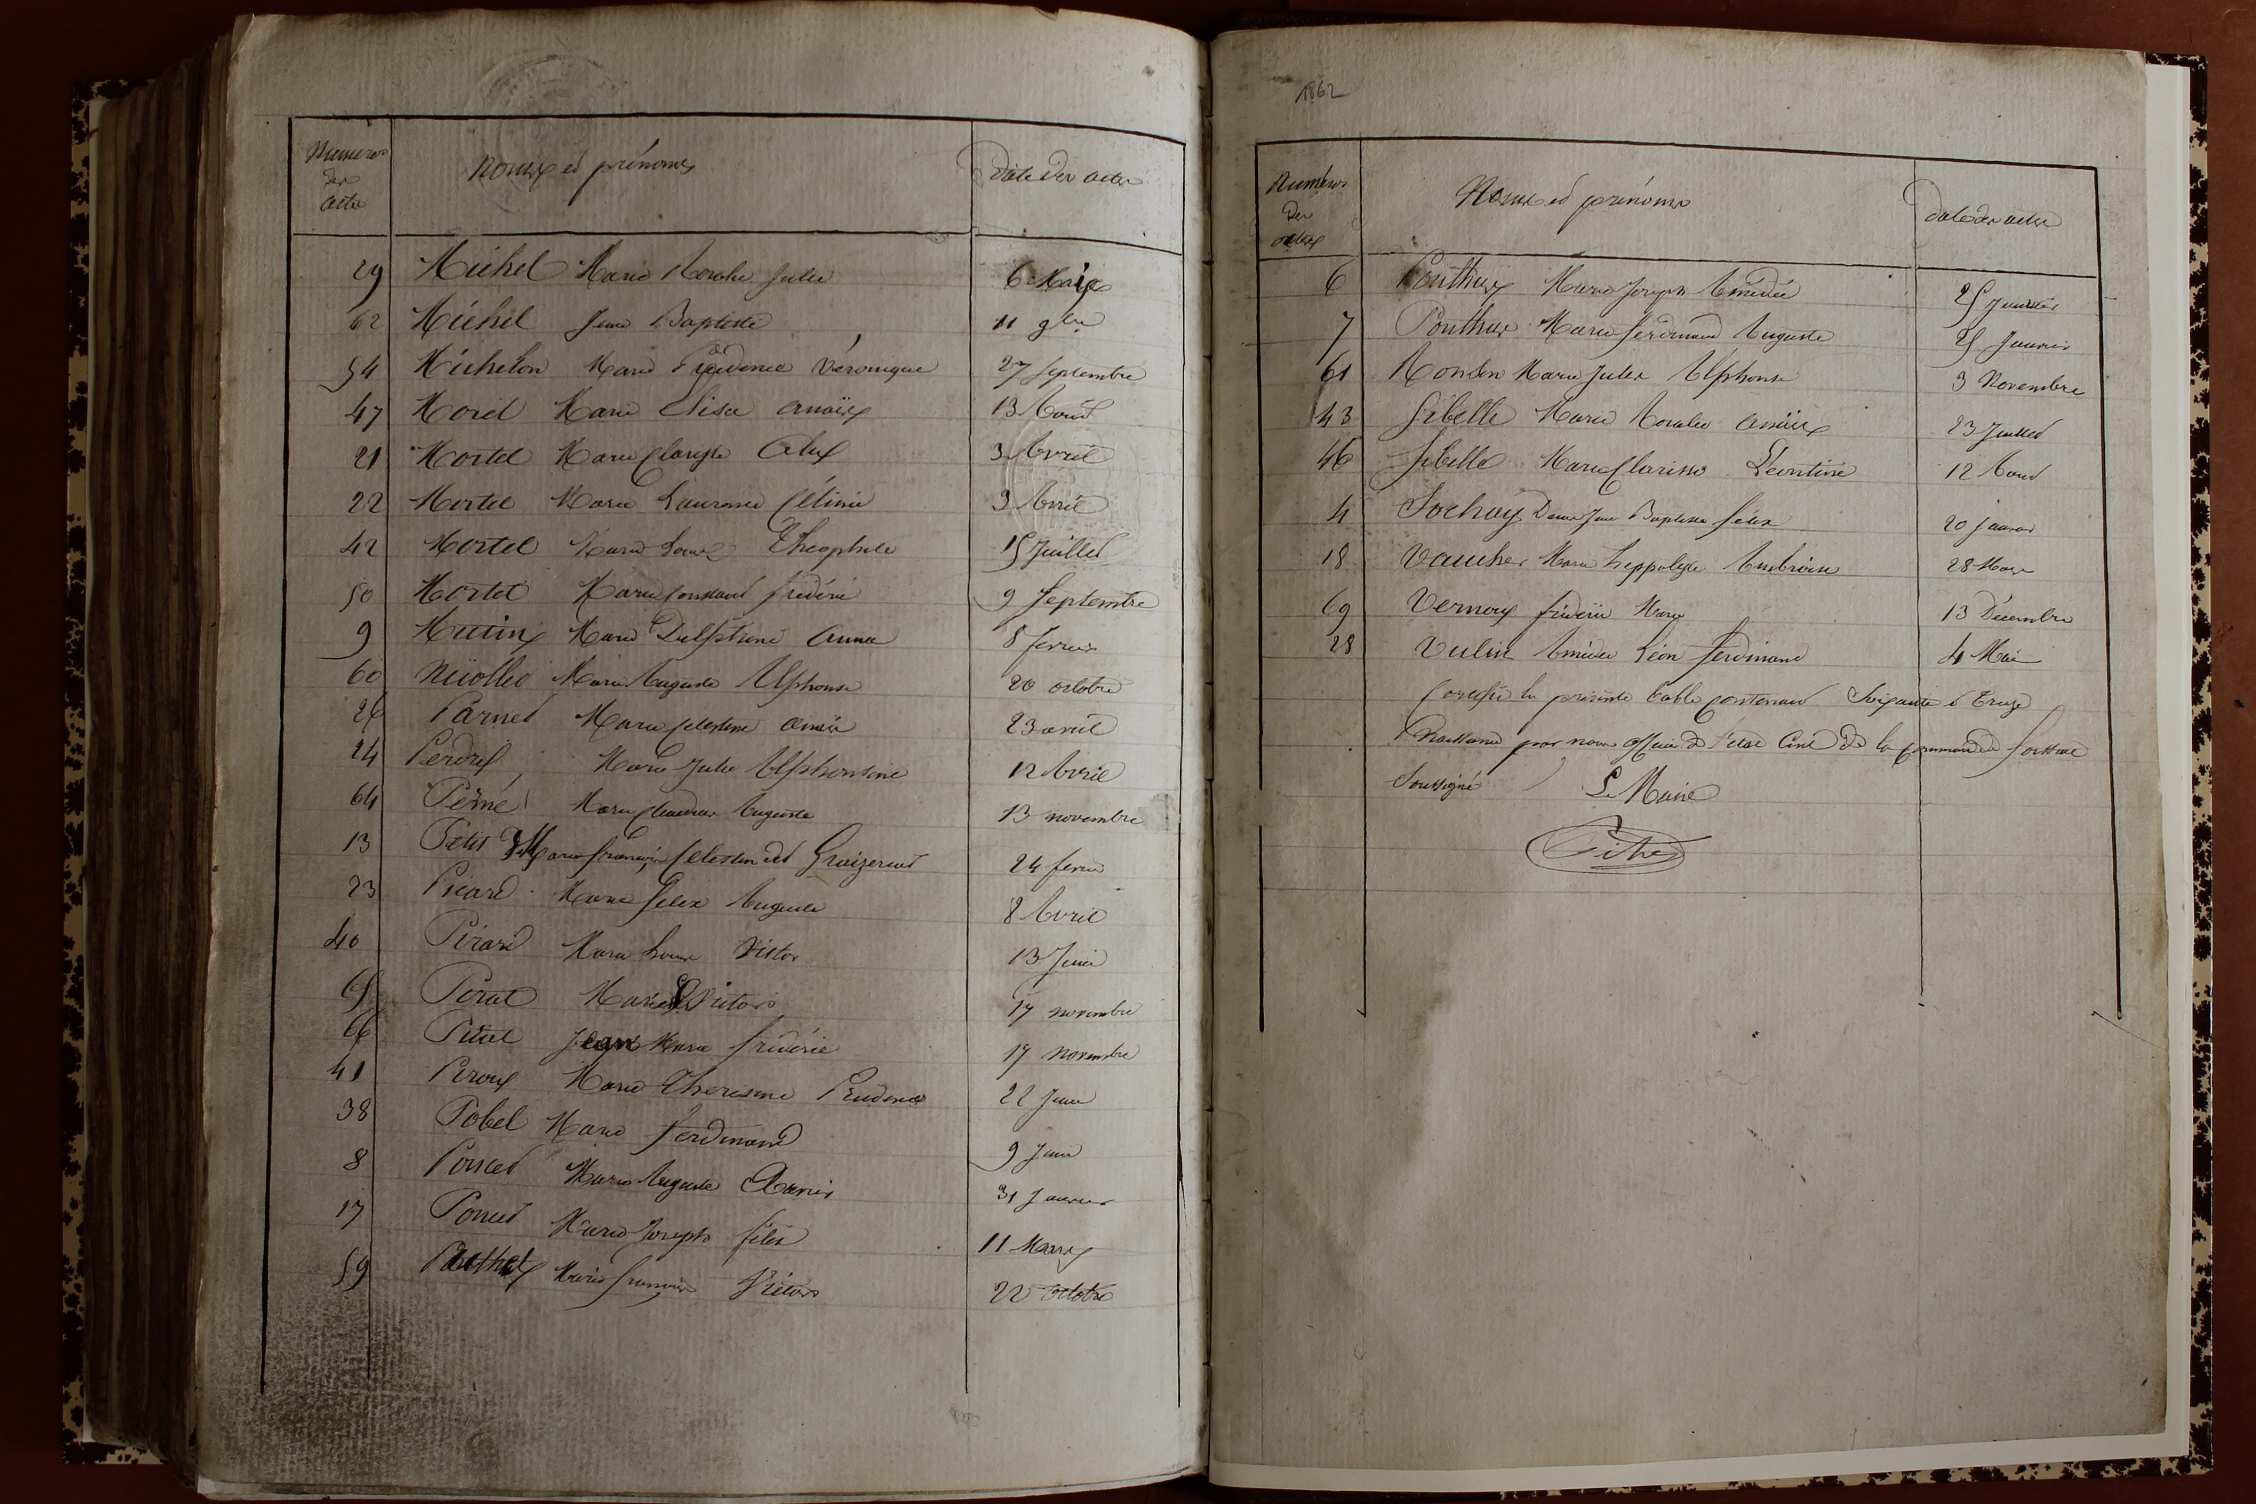 Numeros
des
actes
Noms et prénoms
Date des actes
29 Michel Marie Rosalie Julie 6 Mai
62 Michel Jean Baptiste 11 9bre
54 Michelon Marie Prudence Véronique 27 Septembre
47 Morel Marie Elisa Anaïs 13 Aout
21 Mortel Marie 3 Avril
22 Mortel Marie Laurence Célinie 3 Avril
42 Mortel Marie Louis Théophile 15 Juillet
50 Mortel Marie Constant fréderic 9 Septembre
9 Mutin Marie Delphine Anna 8 fevrier
60 Niiollet Marie Auguste Alphonse 20 octobre
26 Parnet Marie Celestine 23 avril
24 Perdrix Marie Julie Alphonsine 12 Avril
64 Perné Marie Auguste 13 novembre
13 Petit Marie françois Celestin dit Graizerius 24 fevrier
23 Picard Marie Felix Auguste 8 Avril
40 Pirard Marie Louis Victor 13 Juin
65 Pirat Marie Victoris 17 novembre
66 Pirat Jean Marie fréderic 17 novembre
41 Piroux Marie Theresine Prudence 22 Juin
38 Pobel Marie Ferdinand 9 Juin
8 Poncet Marie Auguste Xavier 31 Janvier
17 Poncet Marie Joseph félix 11 Mars
59 Marie françois Victors 22 octobre
1862
Numéros
Des
actes
Noms et prénoms
date des actes
6 Ponthus Marie Joseph Amédée 25 Janvier
7 Ponthus Marie Ferdinand Auguste 25 Janvier
61 Marie Jules Alphonse 3 Novembre
43 Sibelle Marie Rosalie Anaïs 23 Juillet
46 Sibelle Marie Clarisse Léontine 12 Aout
4 Sochay Jean Baptiste félix 20 janvier
18 Vaucher Marie hippolyte Ambroise 28 Mars
69 Vernoux fréderic Marie 13 Décembre
28 Vulin Amédée Léon Ferdinand 4 Mai
Certifié la présente table contenant Soixante et treize
Naissances par nous officier de l'état civil de la commune de
Soussigné
Le Maire